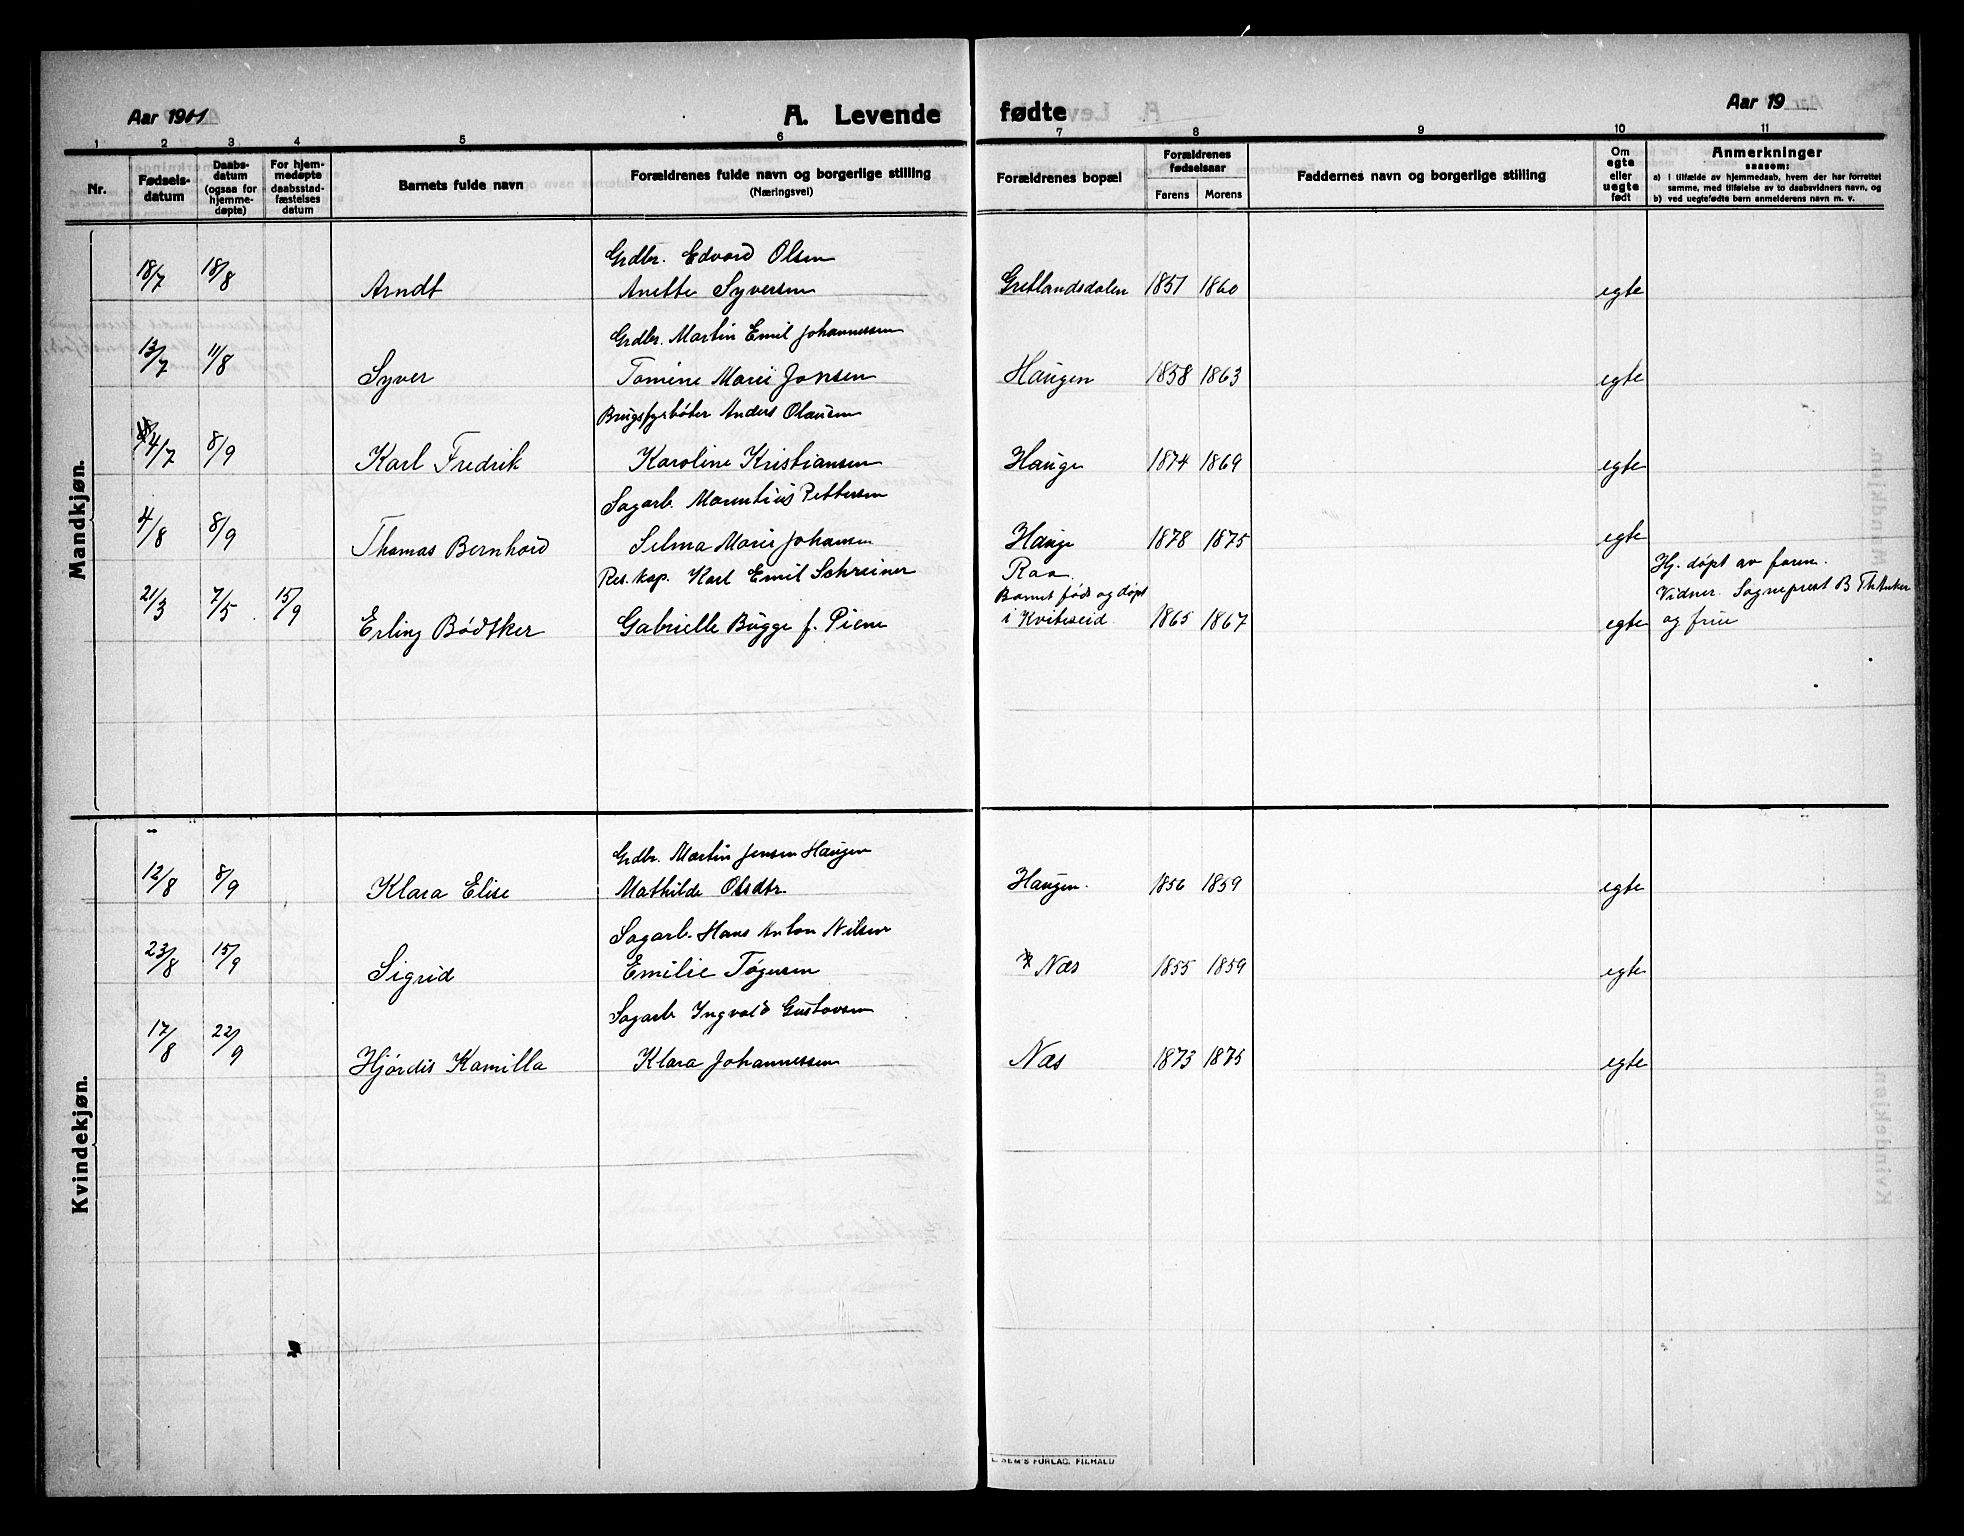 Aar 1901
A. Levende
fødte
Aar 19
1 2 3 4 5 6 7 8 9 10 11
Nr.
Fødsels-
datum
Daabs-
datum
(ogsaa for
hjemme-
døpte)
For hjem-
medøpte
daabsstad-
fæstelses
datum
Barnets fulde navn
Forældrenes fulde navn og borgerlige stilling
(Næringsvei)
Forældrenes bopæl
Forældrenes
fødselsaar
Farens Morens
Faddernes navn og borgerlige stilling
Om
egte
eller
uegte
født
Anmerkninger
saasom:
a) i tilfælde av hjemmedaab, hvem der har forrettet
samme, med tilføielse av to daabsvidners navn, og
b) ved uegtefødte barn anmelderens navn m. v.
Mandkjøn.
Grdbr. Edvard Olsen
18/7 18/8 Arndt Anette Syversen Gretlandsdalen 1851 1860 egte
Grdbr. Martin Emil Johannessen
13/7 11/8 Syver Tomine Marie Jonsen Haugen 1858 1863 egte
Brugsfyrbøter Anders Olausen
4/7 8/9 Karl Fredrik Karoline Kristiansen Hauge 1874 1869 egte
Sagarb. Marentius Pettersen
4/8 8/9 Thomas Bernhard Selma Marie Johansen Hauge 1878 1875 egte
Res. kap. Karl Emil Schreiner Raa. Hj. døpt av faren.
Barnet født og døpt Vidner. Sogneprest B Th Anker
21/3 7/5 15/9 Erling Bödtker Gabrielle Bugge f. Piene i Kviteseid 1865 1867 egte og frue
Kvindekjøn.
Grdbr. Martin Jensen Haugen
12/8 8/9 Klara Elise Mathilde Olsdtr. Haugen. 1856 1859 egte
Sagarb. Hans Anton Nilsen
23/8 15/9 Sigrid Emilie Tøgersen Næs 1855 1859 egte
Sagarb Ingvald Gustavsen
17/8 22/9 Hjørdis Kamilla Klara Johannessen Næs 1873 1875 egte
SEM'S FORLAG. F.HALD